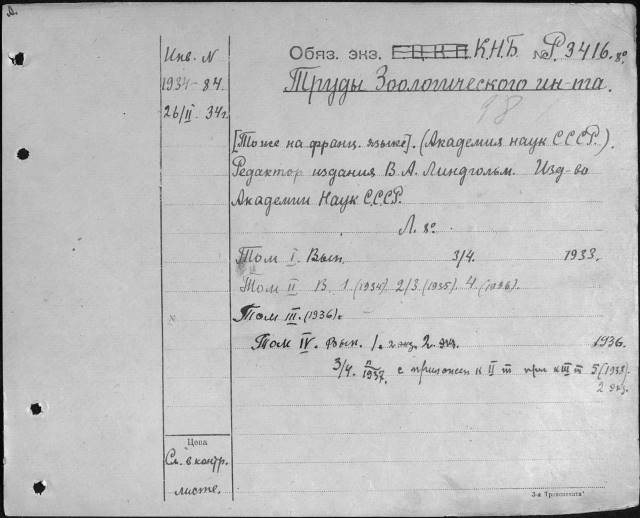 Инв. N
1934-84
26/II 34г.
Обяз. экз. Е.Ц.К.П К.Н.Б №Р.3416.8º
Труды Зоологического ин-та.
98
[Тоже на франц. языке]. (Академия наук С.С.С.Р.).
Редактор издания В.А. Линдгольм. Изд-во
Академии Наук С.С.С.Р.
Л. 8º
Том I. Вып. 3/4 1933.
Том II В. 1. (1934) 2/3 (1935). 4. (1936).
Том III. (1936).
Том IV. Вып. 1. 2 экз. 2. экз. 1936.
3/4. 1937. с прилож к II т при к III т 5 (1938).
2 экз.
Цена
См. в контр.
листе.